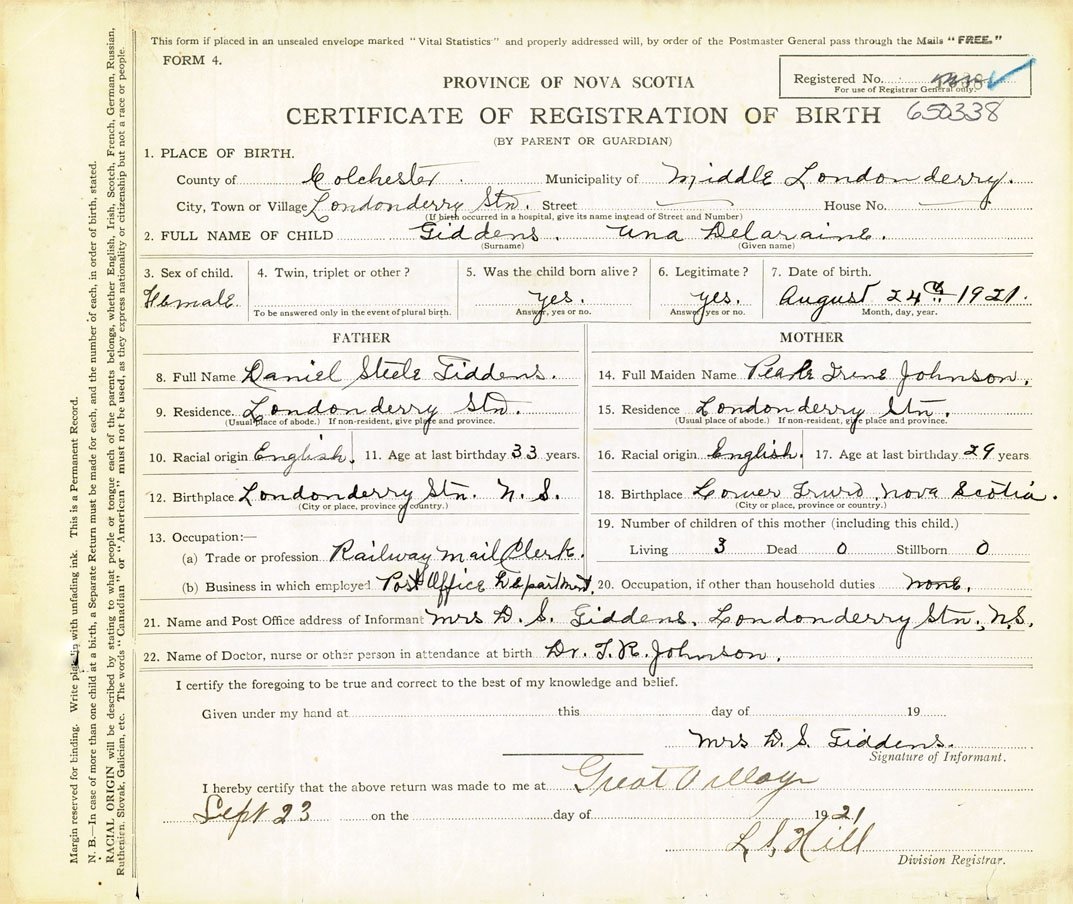 This form if placed in an unsealed envelope marked "Vital Statistics" and properly addressed will, by order of the Postmaster General pass through the Mails "FREE."
FORM 4.
Registered No.
For use of Registrar General only.
PROVINCE OF NOVA SCOTIA
CERTIFICATE OF REGISTRATION OF BIRTH 650338
(BY PARENT OR GUARDIAN)
1. PLACE OF BIRTH.
County of Colchester. Municipality of Middle Londonderry.
City, Town or Village Londonderry Stn. Street House No.
(If birth occurred in a hospital, give its name instead of Street and Number)
2. FULL NAME OF CHILD Giddens. Una Delaraine.
(Surname) (Given name)
3. Sex of child. 4. Twin, triplet or other? 5. Was the child born alive? 6. Legitimate? 7. Date of birth.
Female. yes. yes. August 24th 1921.
To be answered only in the event of plural birth. Answer, yes or no. Answer, yes or no. Month, day, year.
FATHER MOTHER
8. Full Name Daniel Steele Giddens. 14. Full Maiden Name Pearle Irene Johnson.
9. Residence Londonderry Stn. 15. Residence Londonderry Stn.
(Usual place of abode.) If non-resident, give place and province. (Usual place of abode.) If non-resident, give place and province.
10. Racial origin English. 11. Age at last birthday 33 years. 16. Racial origin English. 17. Age at last birthday 29 years
12. Birthplace Londonderry Stn. N.S. 18. Birthplace Lower Truro, Nova Scotia.
(City or place, province or country.) (City or place, province or country.)
13. Occupation:— 19. Number of children of this mother (including this child.)
(a) Trade or profession Railway Mail Clerk. Living 3 Dead 0 Stillborn 0
(b) Business in which employed Post Office Department. 20. Occupation, if other than household duties none.
21. Name and Post Office address of Informant Mrs D. S. Giddens, Londonderry Stn., N.S.
22. Name of Doctor, nurse or other person in attendance at birth Dr. T. R. Johnson.
I certify the foregoing to be true and correct to the best of my knowledge and belief.
Given under my hand at this day of 19
Mrs D. S. Giddens.
Signature of Informant.
I hereby certify that the above return was made to me at Great Village
Sept 23 on the day of 1921
L. S. Hill
Division Registrar.
Margin reserved for binding. Write plainly with unfading ink. This is a Permanent Record.
N. B.—In case of more than one child at a birth, a Separate Return must be made for each, and the number of each, in order of birth, stated.
RACIAL ORIGIN will be described by stating to what people or tongue each of the parents belongs, whether English, Irish, Scotch, French, German, Russian,
Ruthenien, Slovak, Galician, etc. The words "Canadian" or "American" must not be used, as they express nationality or citizenship but not a race or people.